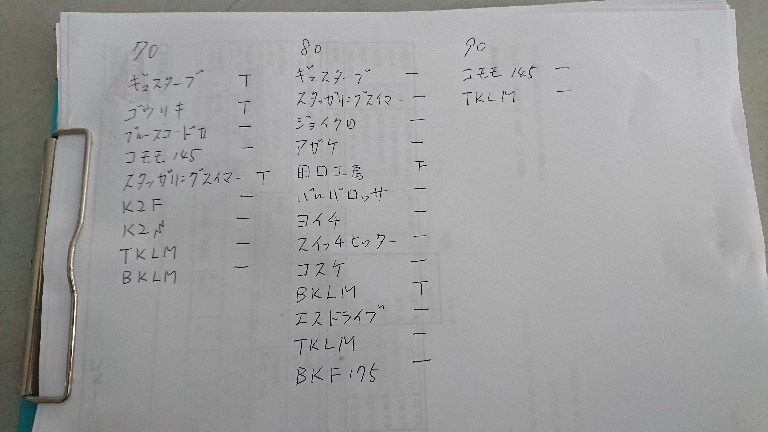 70
ギュスターブ T
ゴウリキ T
ブルースコードⅡ 一
コモモ 145 一
スタッガリングスイマー T
K2F 一
K2F 一
TKLM 一
BKLM 一
80
ギュスターブ 一
スタッガリングスイマー 一
ジョイクロ 一
アザケ 一
田口工房 下
バルバロッサ 一
ヨイチ 一
スイッチヒッター 一
コスケ 一
BKLM T
エストライブ 一
TKLM 一
BKF175 一
90
コモモ 145 一
TKLM 一